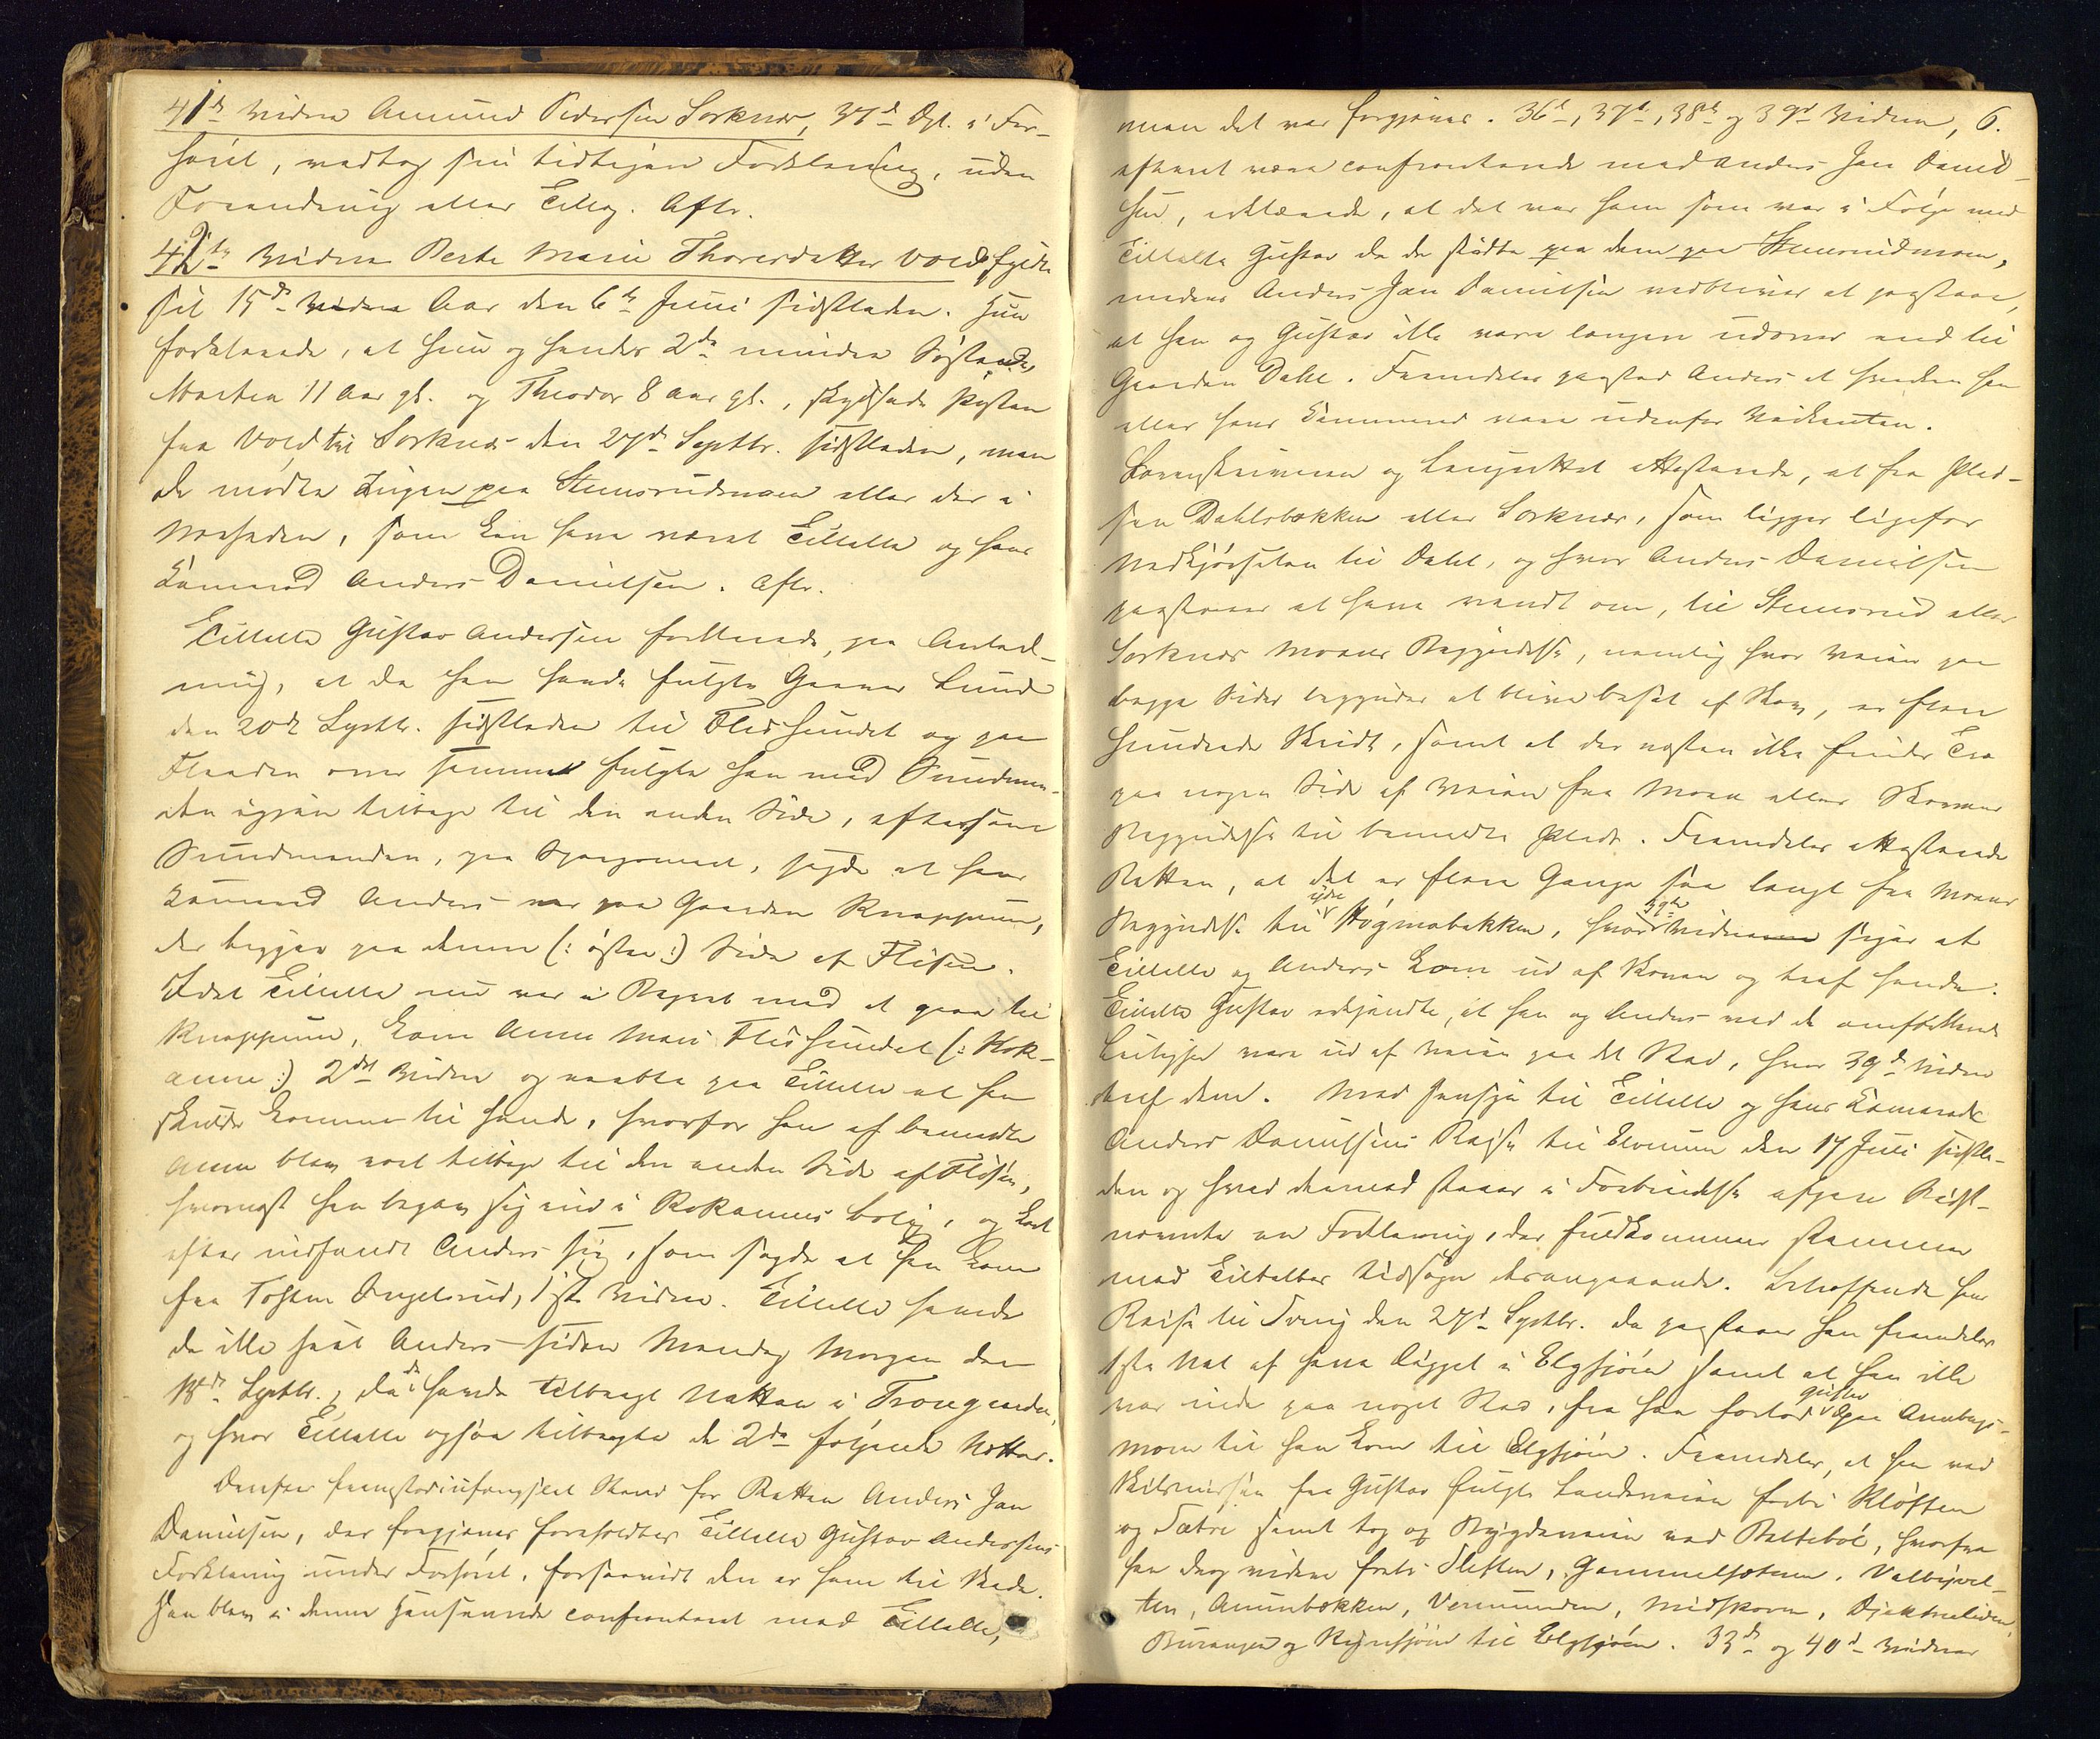 41de Vidne Amund Pedersen Sorknes, 37d Dpt. i For-
høret, vedtog sin tidligere Forklaring, uden
Forandring eller Tillæg. Aftr.
42de Vidne Berte Marie Thoresdatter Vold fyldte
sit 15de Aar den 6te Juni sidstleden. Hun
forklarede, at hun og hendes 2de mindre Søskende,
Marthea 11 Aar gl. og Theodor 8 Aar gl., skydsede Posten
fra Vold til Sorknes den 27de Septbr. sidstleden, men
de mødte Ingen paa Stensrudmoen eller der i
Nærheden, som kan have været Tiltalte og hans
Kamerad Anders Danielsen. Aftr.
Tiltalte Gustav Andersen forklarede, paa Anled-
ning, at da han havde fulgte Gunner Lund
den 20de Septbr. sidstleden til Flissundet og paa
Flaaden over samme fulgte han med Sundman-
den igjen tilbage til den anden Side, eftersom
Sundmanden, paa Spørgsmaal, sagde at hans
Kamerad Anders var paa Gaarden Knappum,
der ligger paa denne (: østre :) Side af Flisen.
Idet Tiltalte nu var i Begreb med at gaa til
Knappum, kom Anne Marie Flissundet (: Rok-
anne :) 2det Vidne og raabte paa Tiltalte at han
skulde komme til hende, hvorfor han af bemeldte
Anne blev roet tilbage til den anden Side af Flisen,
hvornæst han begav sig ind i Rokannes Bolig, og kort
efter indfandt Anders sig, som sagde at han kom
fra Tosten Engelsrud, 1ste Vidne. Tiltalte havde
da ikke seet Anders siden Mandag Morgen den
18de Septbr., da de havde tilbragt Natten i Trongaarden,
og hvor Tiltalte ogsaa tilbragte de 2de følgende Nætter.
Derpaa fremstod i ufængslet Stand for Retten Anders Jan
Danielsen, der forgjæves foreholdtes Tiltalte Gustav Andersens
Forklaring under Forhøret, forsaavidt den er ham til Skade.
Han blev i denne Henseende confronteret med Tiltalte,
men det var forgjæves. 36te, 37te, 38te og 39de Vidne, 6.
efteret være confronterede med Anders Jan Daniel-
sen, erklærede, at det var ham som var i Følge med
Tiltalte Gustav da de stødte paa dem paa Stensrudmoen,
medens Anders Jan Danielsen vedbliver at paastaae,
at han og Gustav ikke vare længere udover end til
Gaarden Dahl. Fremdeles paastod Anders at hverken han
eller hans Kammerad vare udenfor Veikanten.
Sorenskriveren og Lensmannen attesterede, at fra Plad-
sen Dahlsbakken eller Sorknes, som ligger ligefor
Nedkjørselen til Dahl, og hvor Anders Danielsen
paastaaer at have vendt om, til Stensrud eller
Sorknes Moens Begyndelse, nemlig hvor Veien paa
begge Sider begynder at blive besat af Skov, er flere
hundrede Skridt, samt at der næsten ikke findes Træ
paa nogen Side af Veien fra Moen eller Skovens
Begyndelse til bemeldte Plads. Fremdeles attesterede
Retten, at det er flere Gange saa langt fra Moens
Begyndelse til ydre Høgmobakken, hvor 39te Vidne siger at
Tiltalte og Anders kom ud af Skoven og traf hende.
Tiltalte Gustav erkjendte, at han og Anders ved de omforklarede
Leilighed vare ud af Veien paa det Sted, hvor 39de Vidne
traf dem. Med Hensyn til Tiltalte og hans Kamerads
Anders Danielsens Reise til Elverum den 17 Juli sidstle-
den og hvad dermed staaer i Forbindelse afgav Sidst-
nævnte en Forklaring, der fuldkommen stemmer
med Tiltaltes Udsagn derangaaende. Betræffende hans
Reise til Sverig den 27de Septbr. da paastaaer han fremdeles
1ste Nat at have ligget i Elgsjøen samt at han ikke
var inde paa noget Sted, fra han forlod Gustav paa Arneberg-
moen til han kom til Elgsjøen. Fremdeles, at han ved
Skilsmissen fra Gustav fulgte Landeveien forbi Kløften
og Sætre samt tog op Bygdeveien ved Baltebøl, hvorfra
han drog videre forbi Sletten, Gammelsæteren, Valbyvel-
ten, Anundbækken, Vermunden, Midskoven, Djekneliden,
Burangen og Røgnsjøen til Elgsjøen. 33de og 40de Vidner